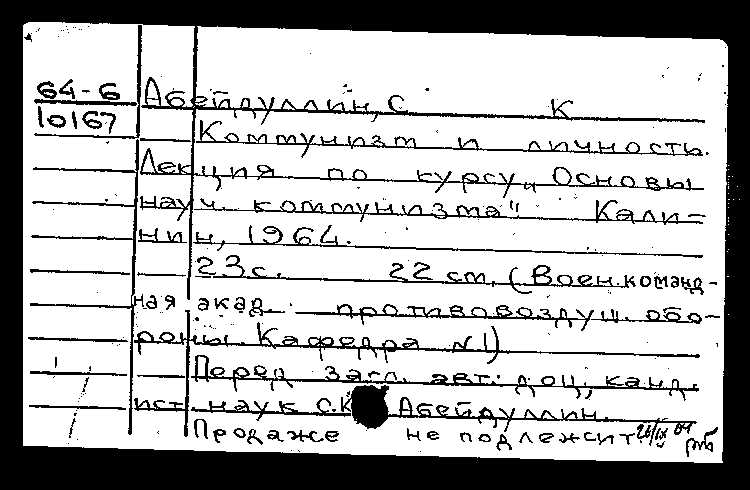 64-6 Абейдуллин, С К
10167 Коммунизм и личность.
Лекция по курсу „Основы
науч. коммунизма“. Кали=
нин, 1964.
23с. 22 см. (Воен. команд-
ная акад. противовоздуш. обо-
роны. Кафедра №1)
Перед загл. авт.: доц., канд.
ист. наук С.К Абейдуллин.
Продаже не подлежит.